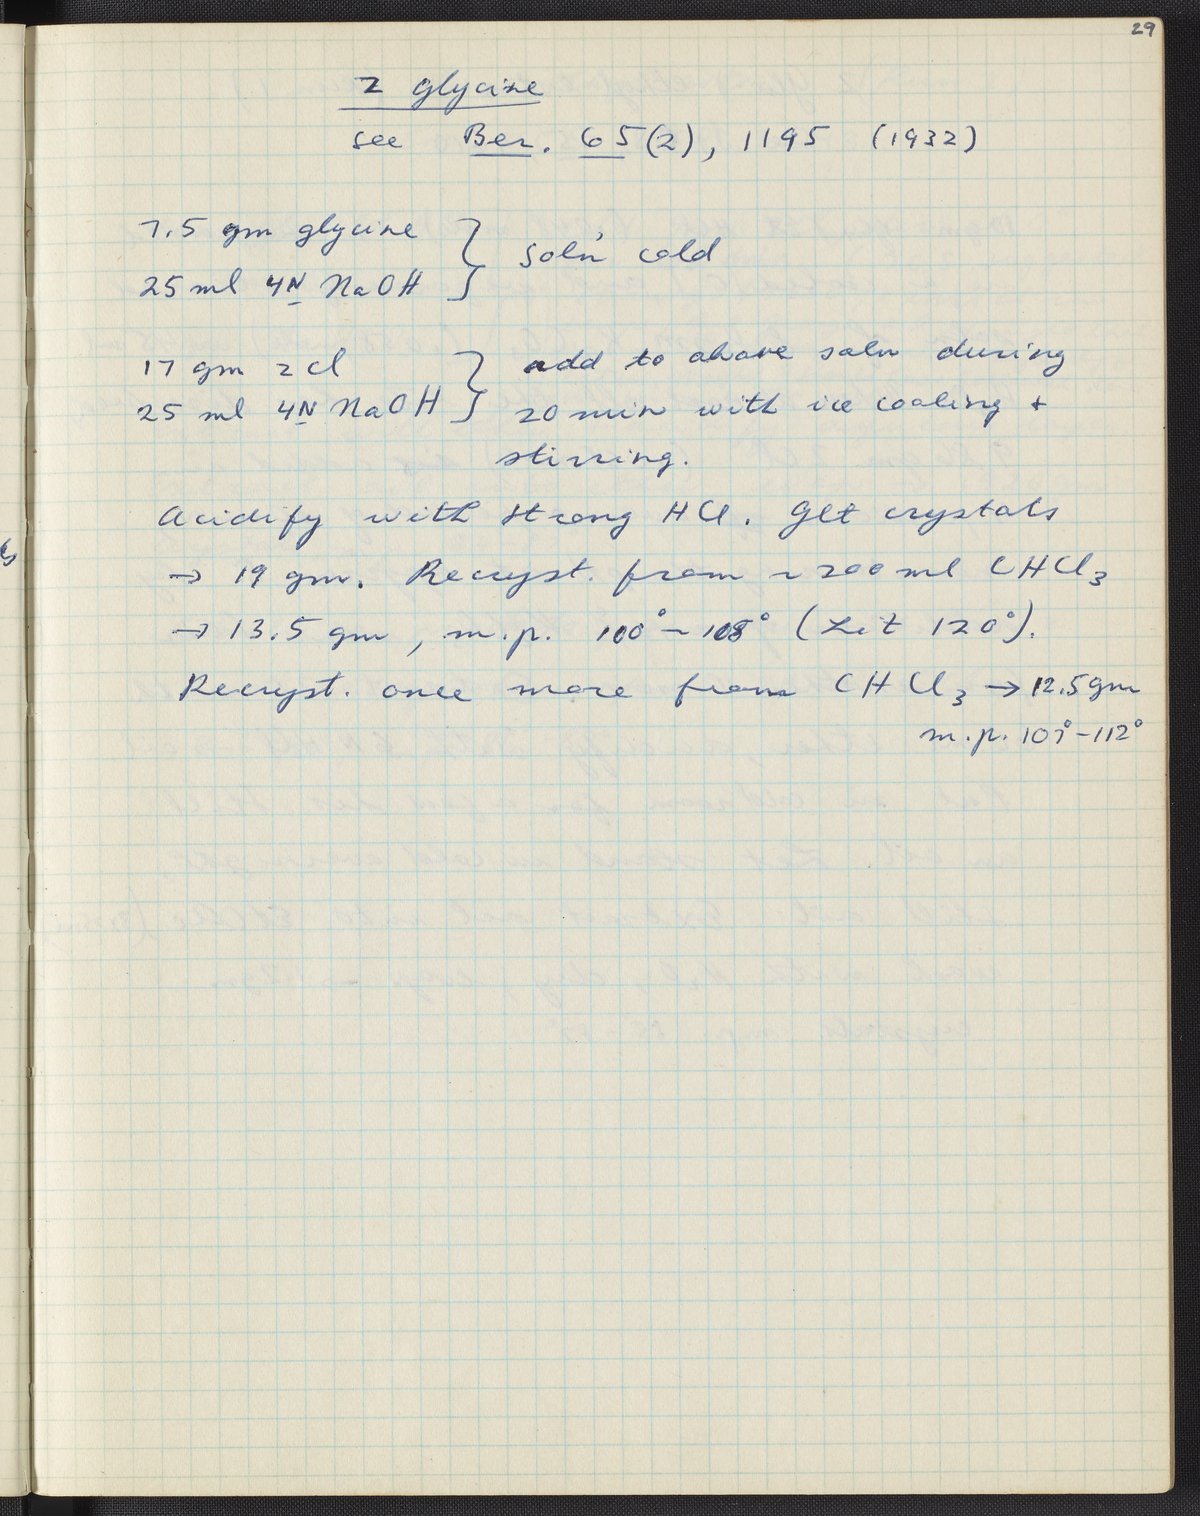 29
Z glycine
see Ber. 65(2), 1195 (1932)
7.5 gm glycine
25 ml 4N NaOH } Sol'n cold
17 gm Z Cl } add to above soln during
25 ml 4N NaOH 20 min with ice cooling +
stirring.
Acidify with strong HCl. Get crystals
→ 19 gm. Recryst. from ~ 200 ml CHCl3
→ 13.5 gm, m.p. 100° – 108° (Lit 120°).
Recryst. once more from CHCl3 → 12.5 gm
m.p. 107° – 112°